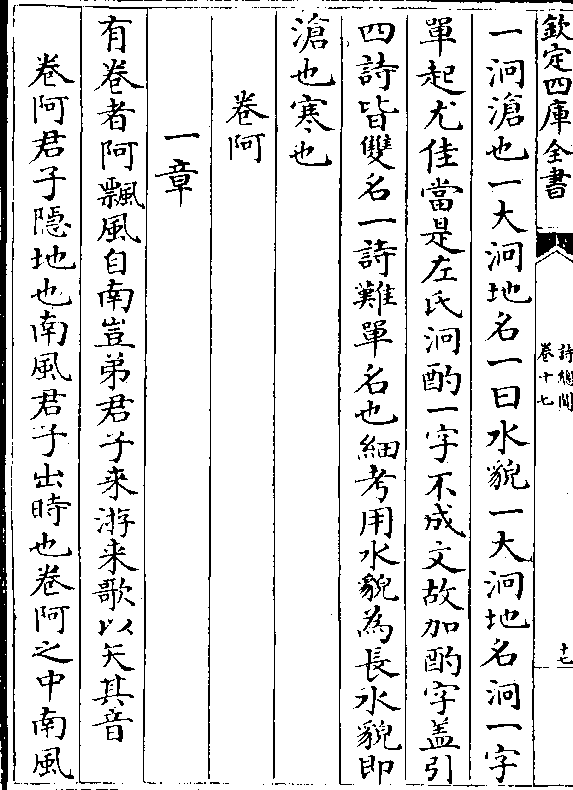 欽定四庫全書
詩總聞
卷十七
十七
一泂滄也一大泂地名一曰水貌一大泂地名泂一字
單起尤佳當是左氏泂酌一字不成文故加酌字盖引
四詩皆雙名一詩難單名也細考用水貌為長水貌即
滄也寒也
卷阿
一章
有卷者阿飄風自南豈弟君子来游来歌以矢其音
卷阿君子隠地也南風君子出時也卷阿之中南風